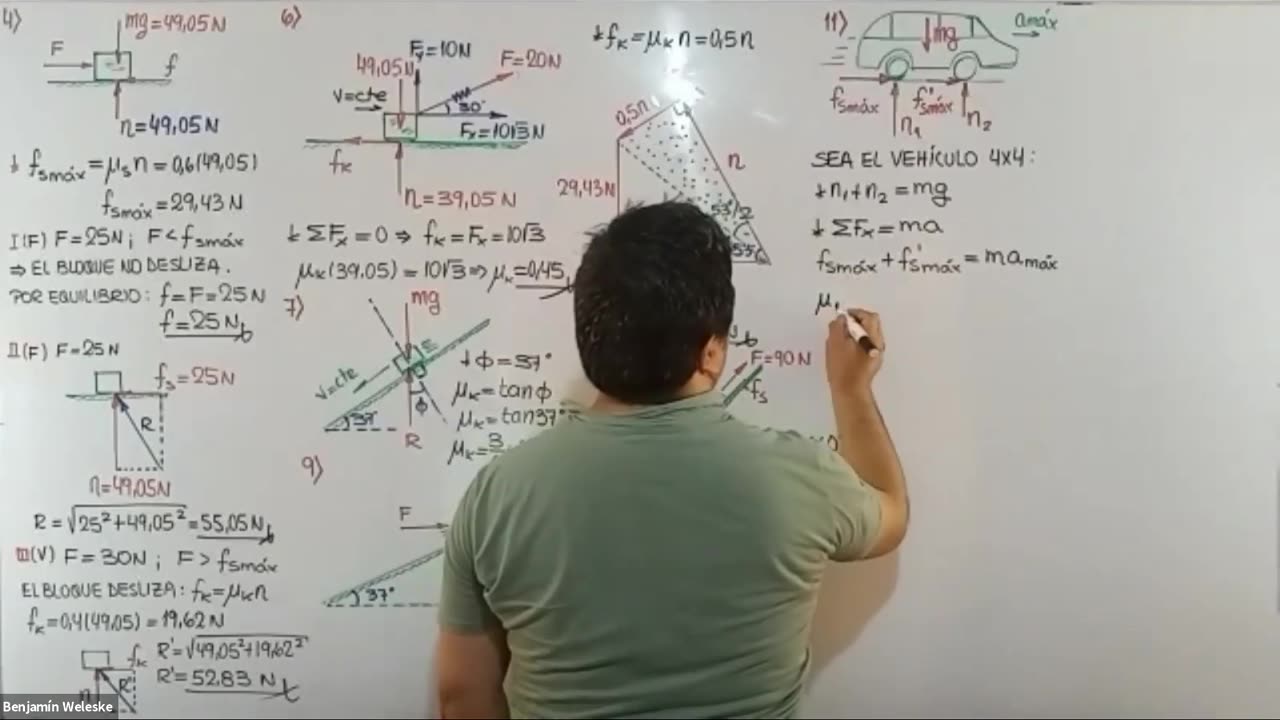 4)
mg=49,05N
F
f
n=49,05N
fsmáx=μs n=0,6(49,05)
fsmáx=29,43N
I(F) F=25N; F<fsmáx
⇒ EL BLOQUE NO DESLIZA.
POR EQUILIBRIO: f=F=25N
f=25N
II(F) F=25N
fs=25N
R
n=49,05N
R=√25²+49,05²=55,05N
III(V) F=30N; F>fsmáx
EL BLOQUE DESLIZA: fk=μkn
fk=0,4(49,05)=19,62N
fk
R'=√49,05²+19,62²
n
R'
R'=52,83 N
6)
Fy=10N
49,05N
F=20N
V=cte
30°
Fx=10√3N
fk
n=39,05N
ΣFx=0 ⇒ fk=Fx=10√3
μk(39.05)=10√3 ⇒ μk=0,45
7)
mg
V=cte
37°
ϕ
R
ϕ=37°
μk=tanϕ
μk=tan37°
μk=3
9)
F
37°
fk=μk n=0,5n
0,5n
n
29,43N
53°/2
F=90N
fs
11)
mg
amáx
fsmáx
f'smáx
n1
n2
SEA EL VEHÍCULO 4X4:
n1+n2=mg
ΣFx=ma
fsmáx+f'smáx=mamáx
μ
Benjamín Weleske